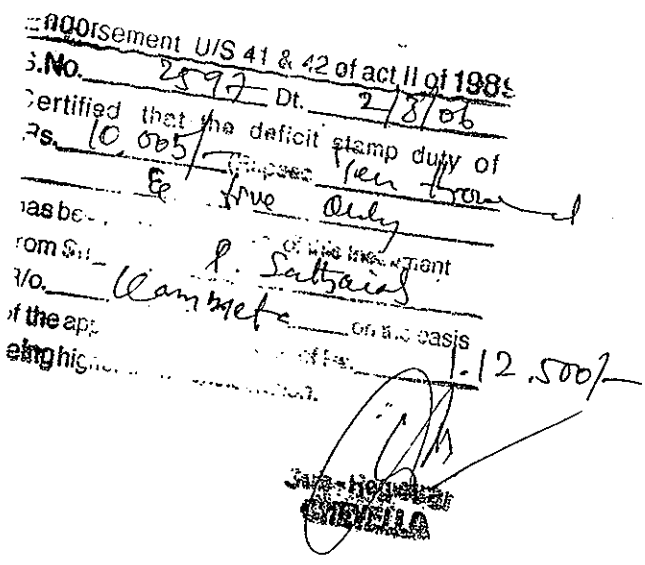 Endorsement U/S 41 & 42 of act II of 1989
S.No. 2597 Dt. 2/8/06
Certified that the deficit stamp duty of
Rs. 10,005/- (Rupees Ten thousand
& five only
has be of this Instrument
from Sri P. Sathaiah
R/o. on the basis
of the of Rs. 1.12.500/-
being
Sub-Registrar
CHEVELLA